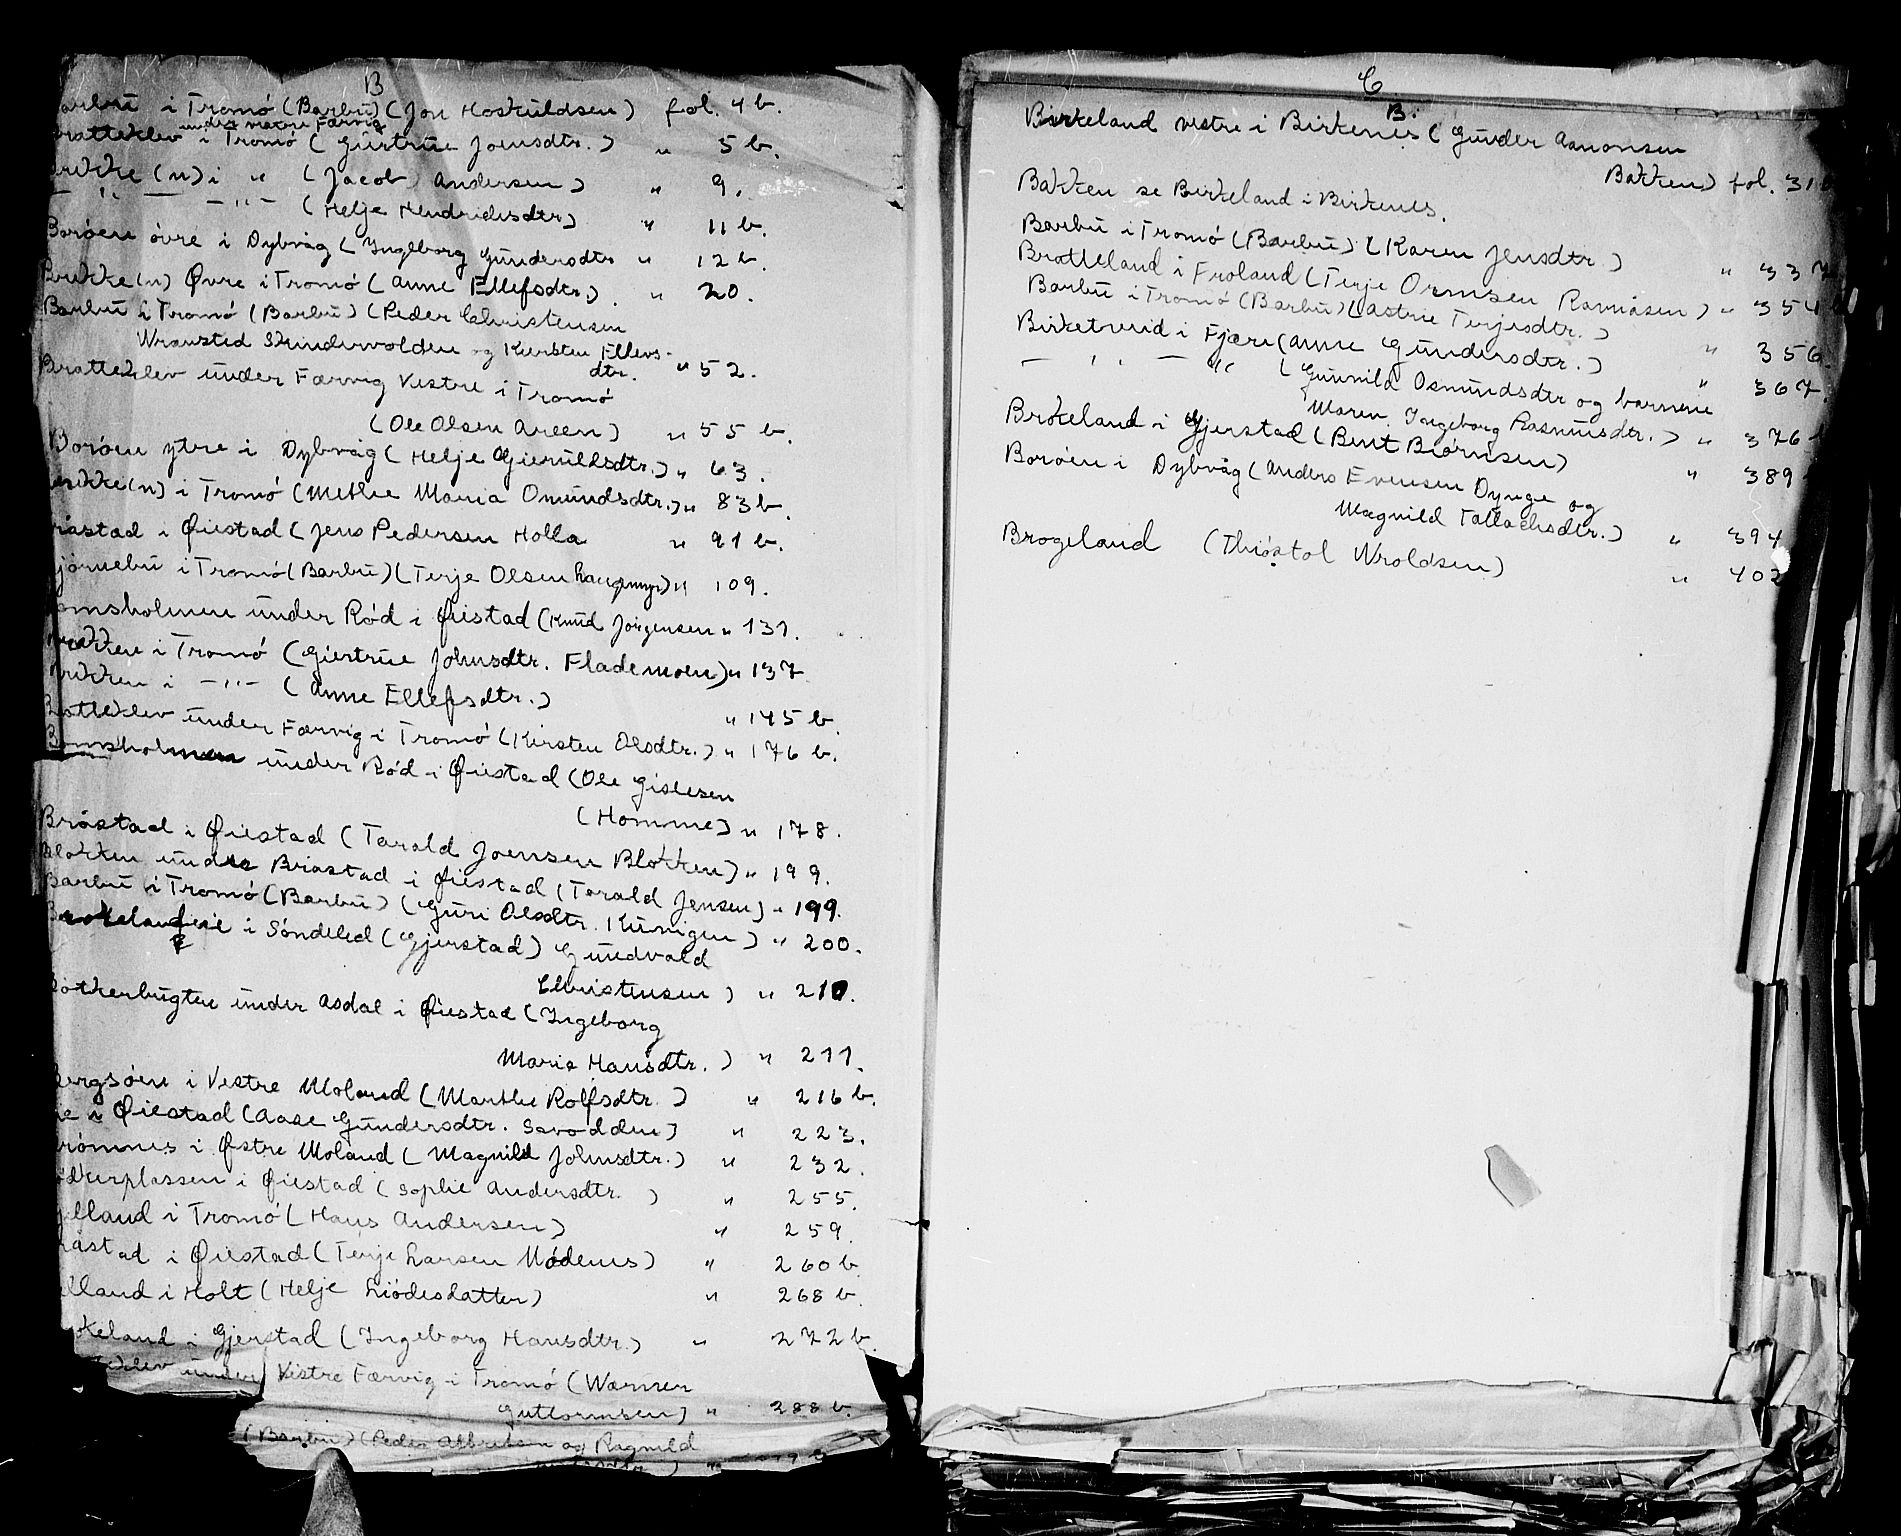 B
Barbu i Tromö (Barbu) (Jon Hoskuldsen) fol. 4 b.
under vestre Færvig
Bratteklev i Tromö (Giertrue Joensdtr.) " 5 b.
Brekke (n) i " (Jacob Andersen) " 9.
— " — — " — (Helje Hendrichsdtr) " 11 b.
Boröen övre i Dybvåg (Ingeborg Gundersdtr " 12 b.
Brekke(n) Øvre i Tromö (Anne Ellefsdtr.) " 20.
Barbu i Tromö (Barbu) (Peder Christensen
Wransted Skindervolden og Kiersten Ellevs-
dtr. " 52.
Bratteklev under Færvig Vestre i Tromö
(Ole Olsen Areen) " 55 b.
Boröen ytre i Dybvåg (Helje Gierulfsdtr.) " 63.
Brekke(n) i Tromö (Methe Maria Omundsdtr.) " 83 b.
Briastad i Øiestad (Jens Pedersen Holla " 91 b.
Bjørnebu i Tromö (Barbu) (Terje Olsen Langemyr) " 109.
Bomsholmen under Röd i Øiestad (Knud Jörgensen " 131.
Brekken i Tromö (Giertrue Johnsdtr. Flademoen) " 137
Brekken i — " — (Anne Ellefsdtr.) " 145 b.
Bratteklev under Færvig i Tromö (Kirsten Olsdtr.) " 176 b.
Bomsholmen under Röd i Øiestad (Ole Gislesen
(Homme) " 178.
Bråstad i Øiestad (Tarald Joensen Blokken) " 199.
Blokken under Briastad i Øiestad (Tarald Jensen) " 199.
Barbu i Tromö (Barbu) (Guri Olsdtr. Kunigen) " 200.
i Söndeled (Gjerstad) Gundvald
Christensen) " 210.
under Asdal i Øiestad (Ingeborg
Maria Hansdtr.) " 211.
Bergsöen i Vestre Moland (Marthe Rolfsdtr.) " 216 b.
i Øiestad (Aase Gundersdtr. Savodden) " 223.
i Østre Moland (Magnild Johnsdtr.) " 232.
i Øiestad (Sophie Andersdtr.) " 255.
i Tromö (Hans Andersen) " 259.
i Øiestad (Terje Larsen Mödenes) " 260 b.
i Holt (Helje Liödesdatter) " 268 b.
i Gjerstad (Ingeborg Hansdtr.) " 272 b.
under Vestre Færvig i Tromö (Warner
Guttormsen) " 288 b.
(Barbu) (Peder Albretsen og Ragnild
C
B.
Birkeland vestre i Birkenes (Gunder Aanonsen
Bakken) fol. 31
Bakken se Birkeland i Birkenes.
Barbu i Tromö (Barbu) (Karen Jensdtr.) " 337
Bratteland i Froland (Terje Ormsen Ramåsen) " 354
Barbu i Tromö (Barbu) (Astrie Terjesdtr.) " 356
Birketveid i Fjære (Anne Gundersdtr.) " 367
— " — " (Gunnild Osmundsdtr og barnene
Maren Ingeborg Rasmusdtr.) " 376
Brokeland i Gjerstad (Bent Biørnsen) " 389
Boröen i Dybvåg (Anders Evensen Dynge og
Magnild Tallachsdtr.) " 394
Brogeland (Thiøstol Wroldsen) " 402